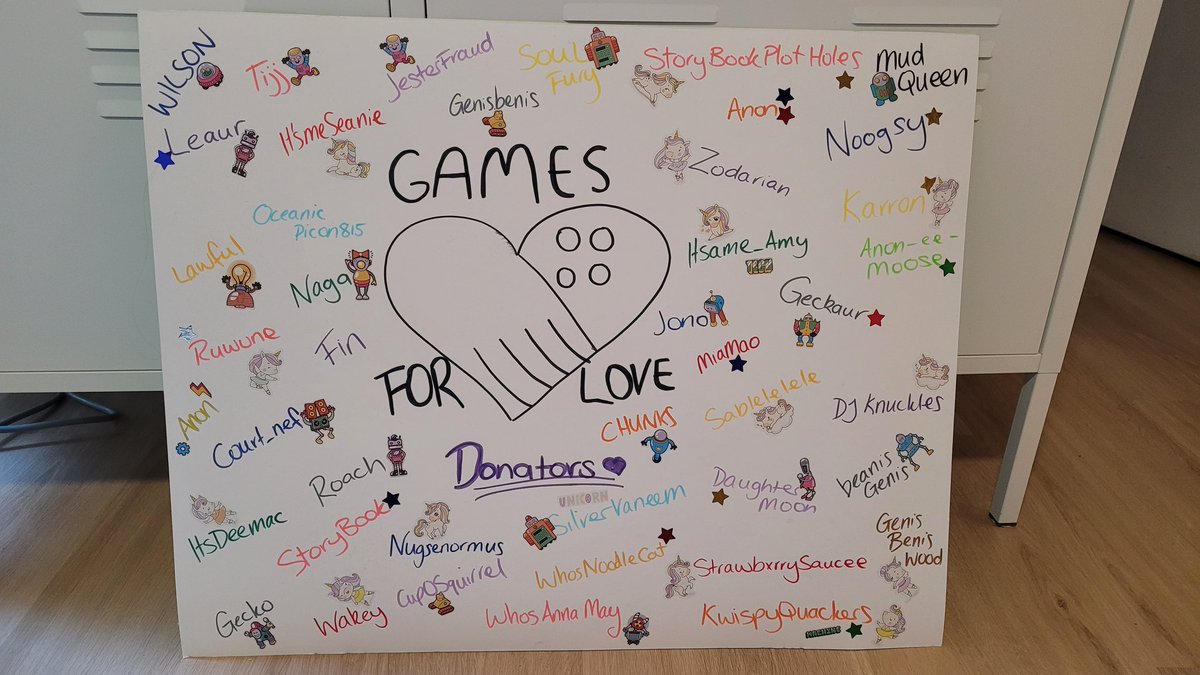 WILSON
Tijj
JesterFraud
Soul
Fury
StoryBookPlotHoles
Mud
Queen
Leaur
It'smeSeanie
Genisbenis
Anon
Noogsy
GAMES
Zodarian
Karron
Oceanic
Picon815
Itsame_Amy
Anon-ee-
Moose
Lawful
Naga
Geckaur
Jono
Ruwune
Fin
MiaMao
FOR
LOVE
Anon
Court_nef
CHUNKS
Sablelelele
DJ Knuckles
Donators
Roach
Daughter
Moon
beanis
Genis
UNICORN
ItsDeemac
StoryBook
Nugsenormus
SilverVaneem
Genis
Benis
Wood
CupOSquirrel
WhosNoodleCat
StrawbrrrySaucee
Gecko
Wakey
WhosAnnaMay
KwispyQuackers
MACHINE